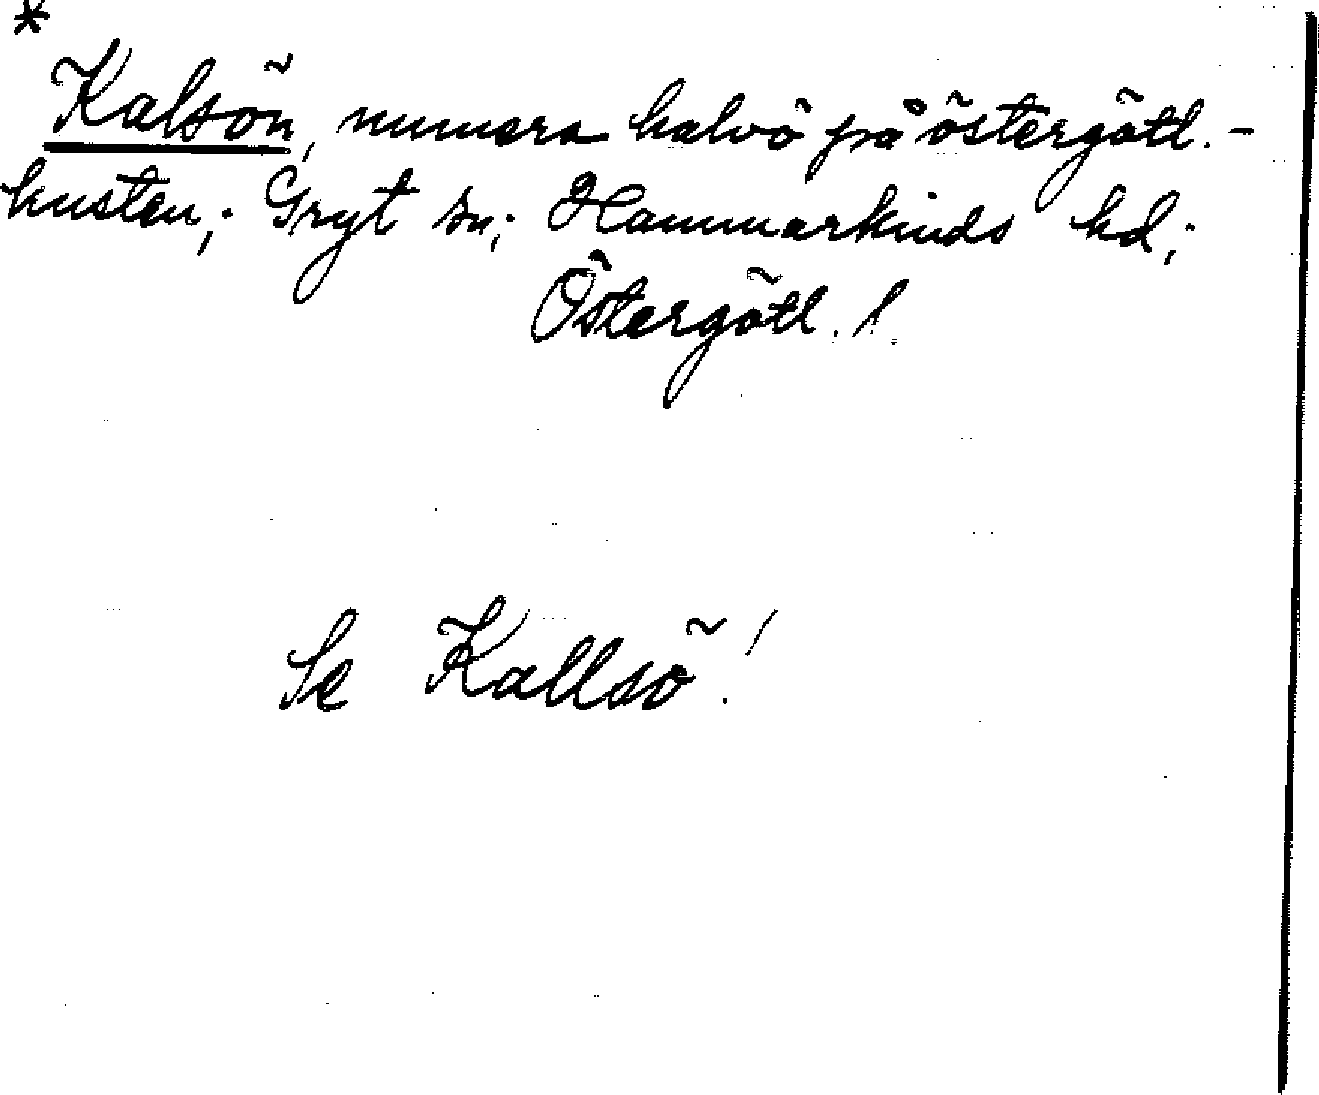 *
Kalsön, numera halvö på östergötl.-
kusten; Gryt sn; Hammarkinds hd;
Östergötl. l.
Se Kallsö!